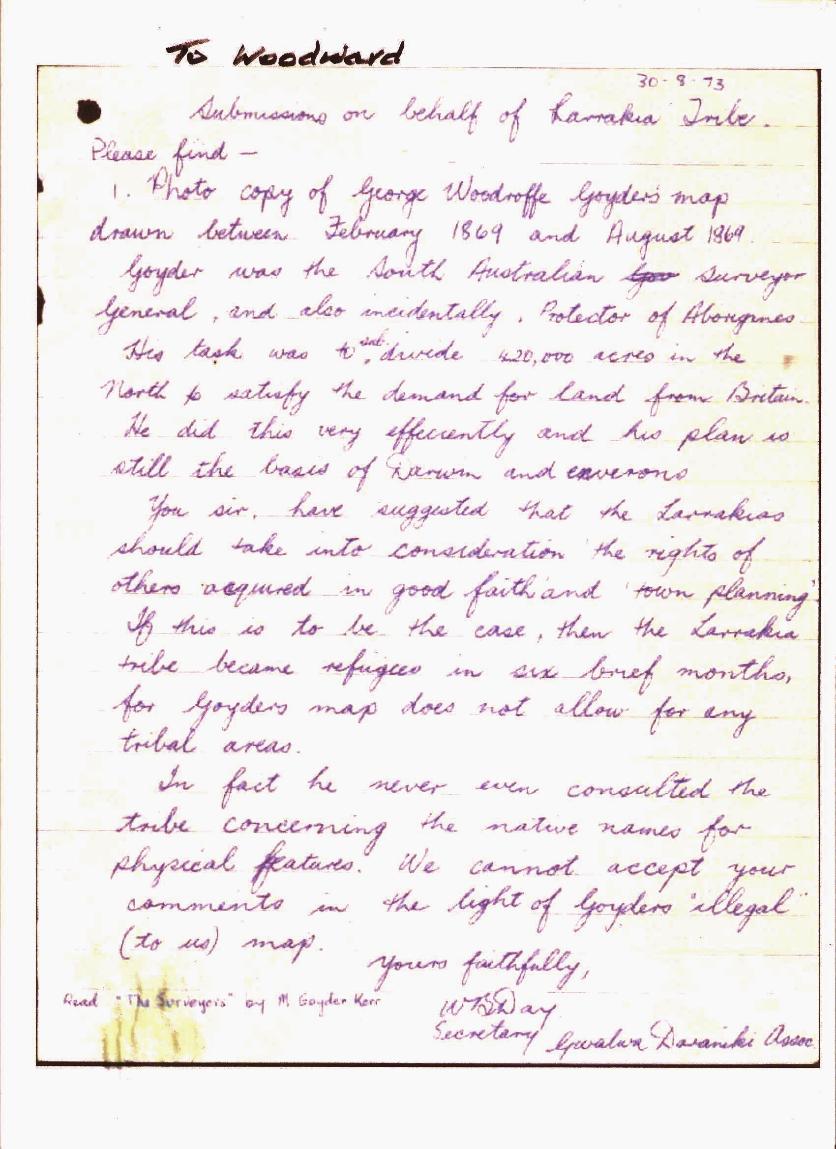 To Woodward
30-8-73
Submissions on behalf of Larrakia Tribe.
Please find —
1. Photo copy of George Woodroffe Goyders map
drawn between February 1869 and August 1869.
Goyder was the South Australian Gov Surveyor
General, and also incidentally, Protector of Aborigines
His task was to sub divide 420,000 acres in the
North to satisfy the demand for land from Britain.
He did this very effeciently and his plan is
still the basis of Darwin and enverons
You sir, have suggested that the Larrakias
should take into consideration 'the rights of
others acquired in good faith' and 'town planning'.
If this is to be the case, then the Larrakia
tribe became refugees in six brief months,
for Goyders map does not allow for any
tribal areas.
In fact he never even consulted the
tribe concerning the native names for
physical features. We cannot accept your
comments in the light of Goyders "illegal"
(to us) map.
Yours faithfully,
Read "The Surveyors" by M Goyder Kerr
WBDay
Secretary Gwalwa Daraniki Assoc